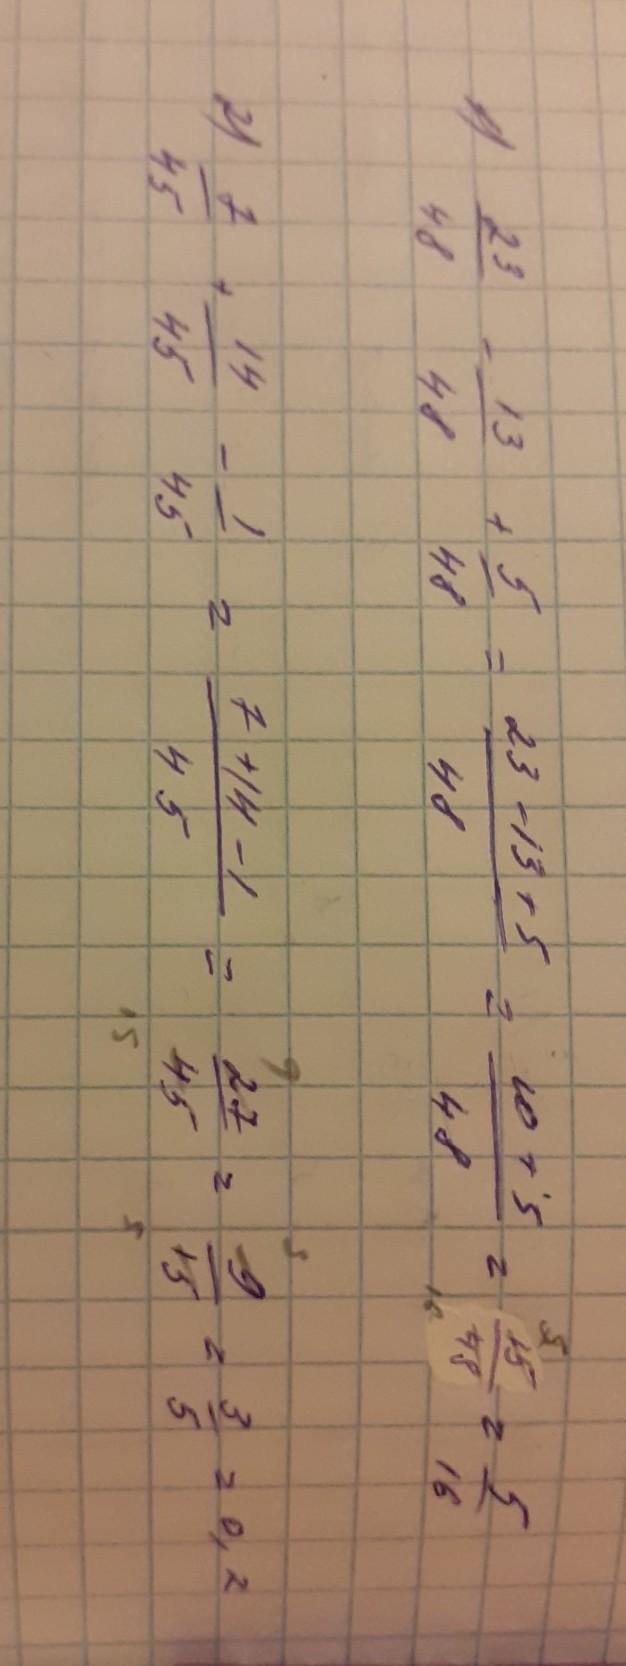 1) 23/48 - 13/48 + 5/48 = (23 - 13 + 5)/48 = (10 + 5)/48 = 15/48 = 5/16
5
16
2) 7/45 + 14/45 - 1/45 = (7 + 14 - 1)/45 = 27/45 = 9/15 = 3/5 = 0,2
9 3
15 5